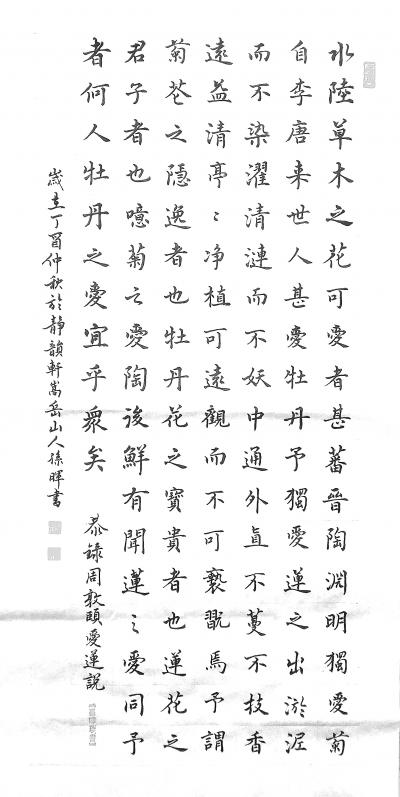 水陸草木之花可愛者甚蕃晉陶淵明獨愛菊
自李唐来世人甚愛牡丹予獨愛蓮之出淤泥
而不染濯清漣而不妖中通外直不蔓不枝香
遠益清亭〻净植可遠觀而不可褻翫焉予謂
菊花之隱逸者也牡丹花之寶貴者也蓮花之
君子者也噫菊之愛陶後鮮有聞蓮〻愛同予
者何人牡丹之愛宜乎衆矣
恭録周敦頤愛蓮説
歲在丁酉仲秋於静韻軒嵩岳山人孫暉書